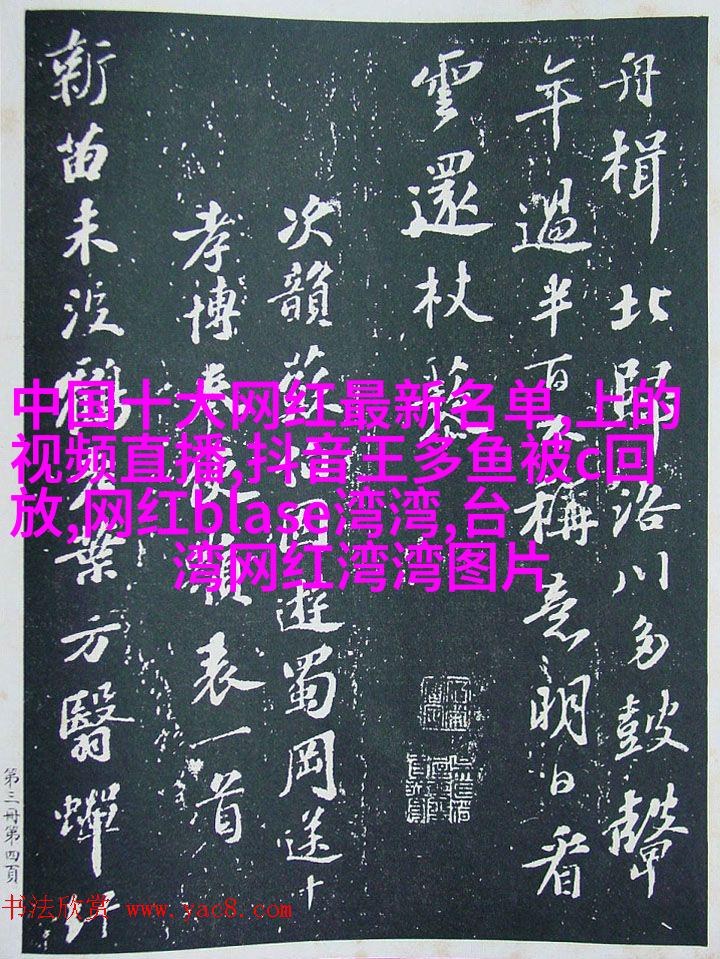 舟楫北歸洛川多鼓聲
年過半百不稱意明日看
雲還杖藜
次韻蘇伯固遊蜀岡送十
孝博奉使嶺表一首
新苗未没鶴葉方翳蟬
中国十大网红最新名单,上的
视频直播,抖音王多鱼被c回
放,网红blase湾湾,台
湾网红湾湾图片
第三册第四頁
书法欣赏 www.yac8.com